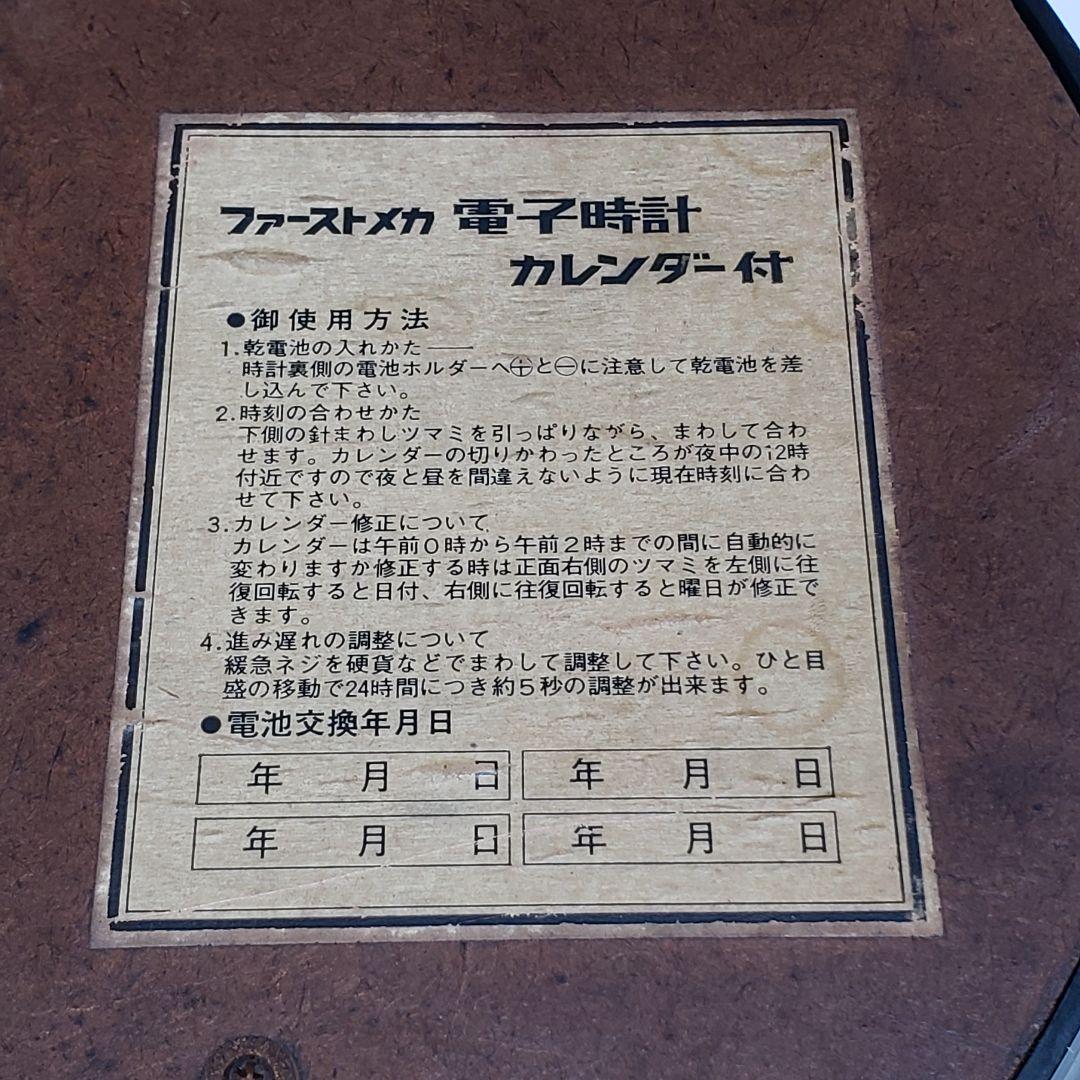 ファーストメカ 電子時計
カレンダー付
●御使用方法
1.乾電池の入れかた――
時計裏側の電池ホルダーへ⊕と⊖に注意して乾電池を差
し込んで下さい。
2.時刻の合わせかた
下側の針まわしツマミを引っぱりながら、まわして合わ
せます。カレンダーの切りかわったところが夜中の12時
付近ですので夜と昼を間違えないように現在時刻に合わ
せて下さい。
3.カレンダー修正について
カレンダーは午前0時から午前2時までの間に自動的に
変わりますか修正する時は正面右側のツマミを左側に往
復回転すると日付、右側に往復回転すると曜日が修正で
きます。
4.進み遅れの調整について
緩急ネジを硬貨などでまわして調整して下さい。ひと目
盛の移動で24時間につき約5秒の調整が出来ます。
●電池交換年月日
年 月 日 年 月 日
年 月 日 年 月 日